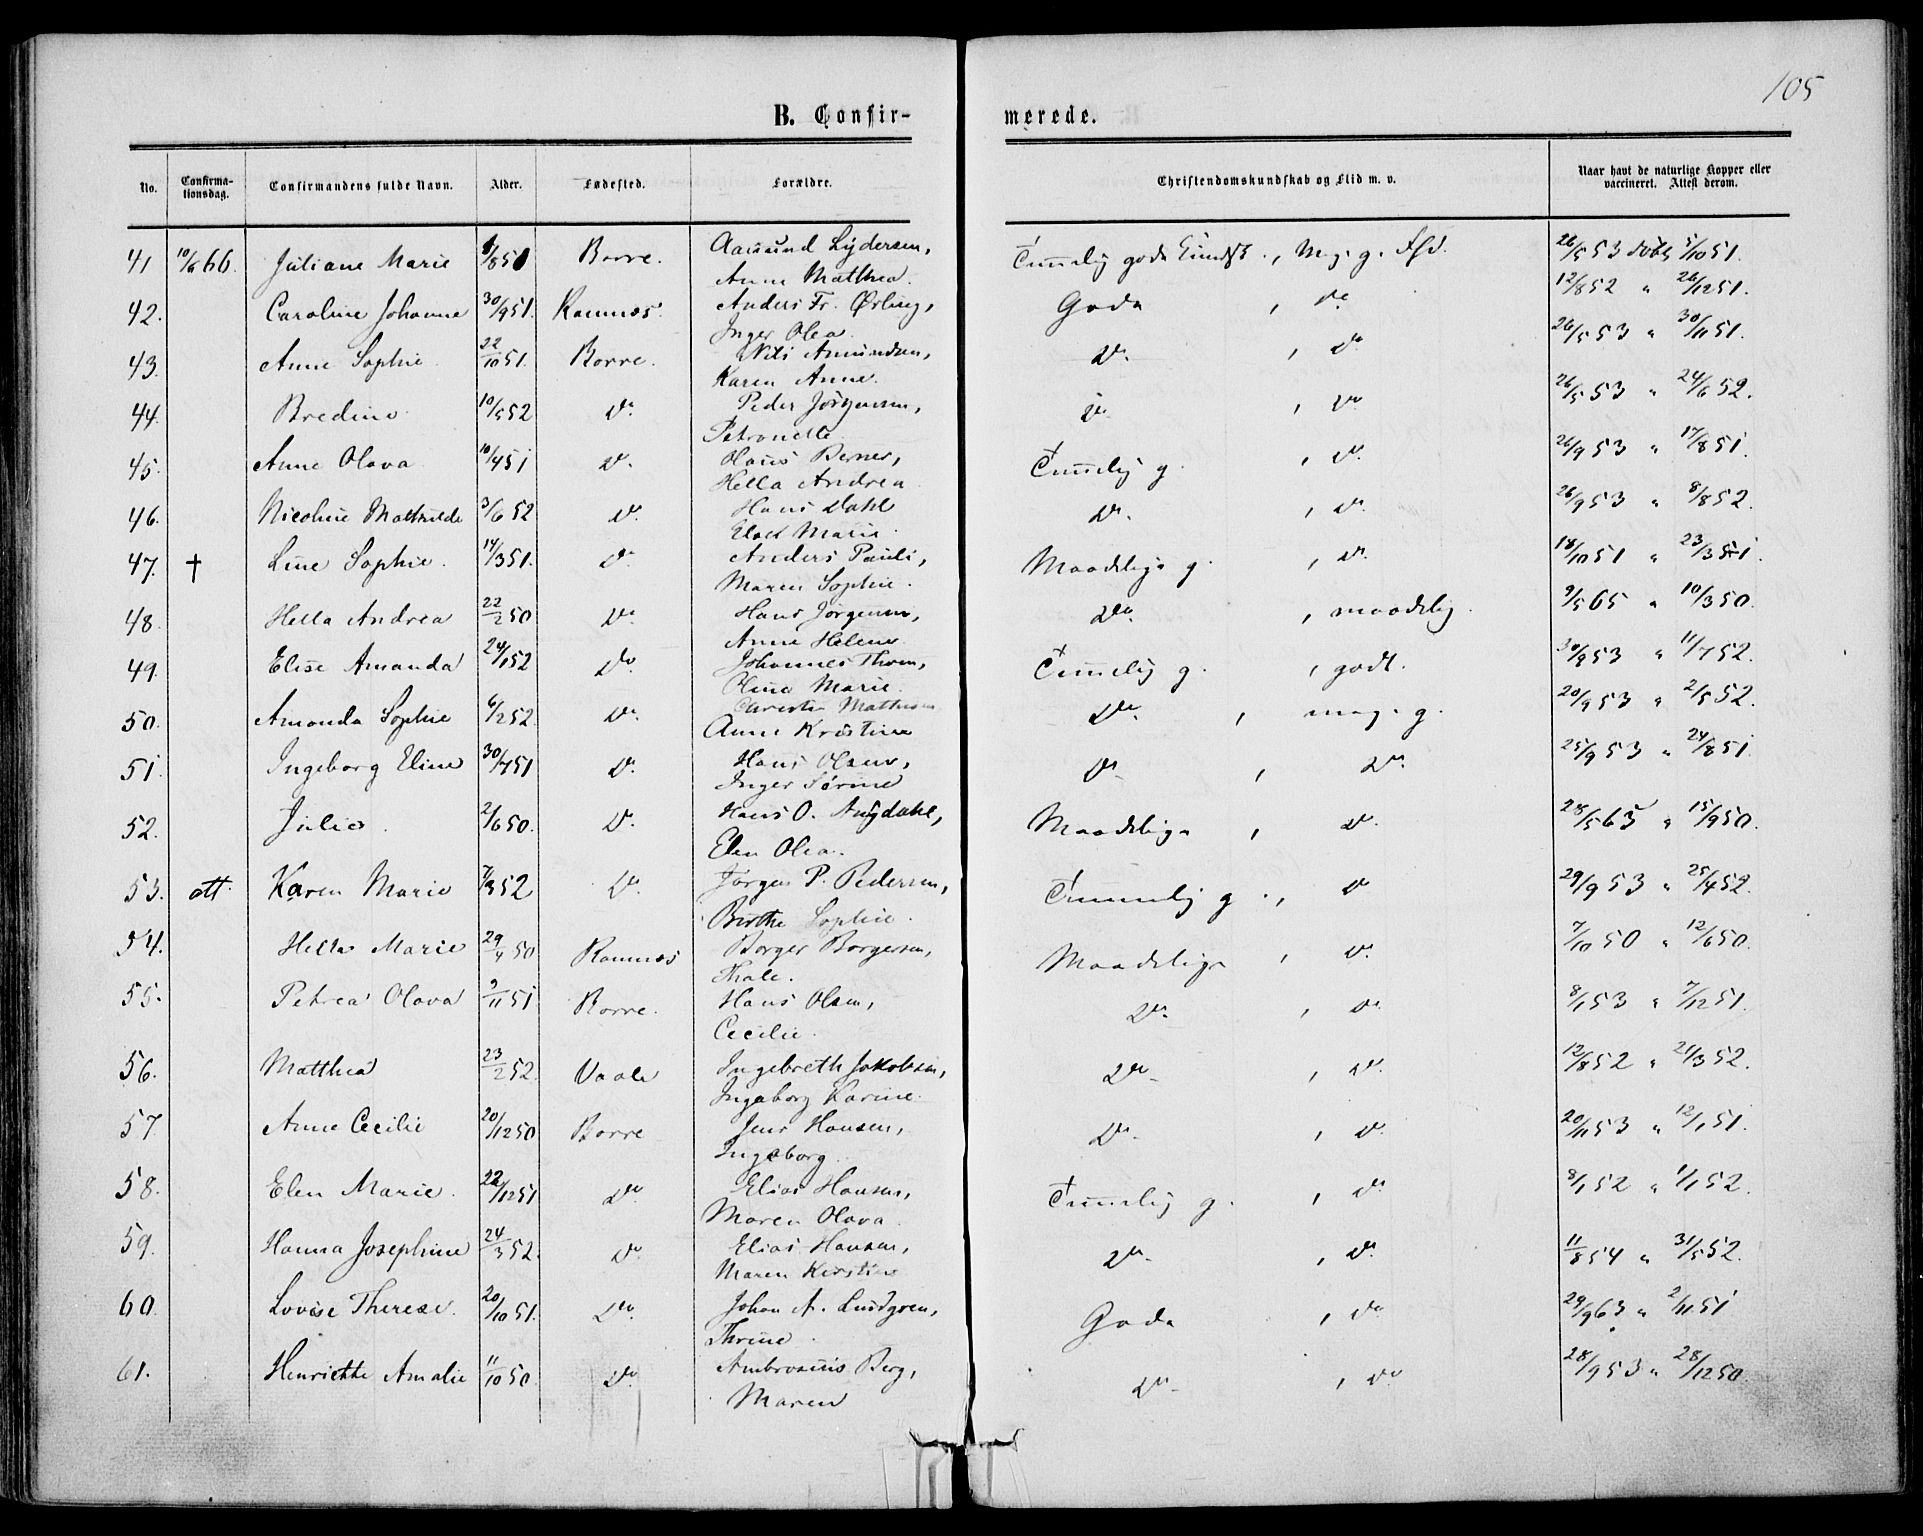 105
B. Confirmerede.
No. Confirmationsdag. Confirmandens fulde Navn. Alder. Fødested. Forældre. Christendomskundskab og Flid m. v. Naar havt de naturlige Kopper eller vaccineret. Attest derom.
41 10/6 66. Juliane Marie /8 51 Borre. Aamund Lydersen, Tmmelig gode Kundsk., Mg. g. Afd. 26/5 53 døbt 5/10 51.
Anne Matthea.
42. Caroline Johanne 30/9 51. Ramnæs. Anders Fr. Ørling, Gode, do 12/8 52 " 26/12 51.
Inger Olea.
43. Anne Sophie 22/10 51. Borre. Nils Amundsen, Do., do 26/5 53 " 30/11 51.
Karen Anne.
44. Bredine 10/5 52 do. Peder Jörgensen, do, do 26/5 53 " 24/6 52.
Petronelle
45. Anne Olava 10/4 51 do. Olaus Berner, Tmmelig g., do. 26/9 53 " 17/8 51.
Hella Andrea
46. Nicoline Mathilde 3/6 52 do. Hans Dahl Do., do. 26/9 53 " 8/8 52.
Marie.
47. † Line Sophie. 14/3 51. do Anders Pauli, Maadelige g., do. 18/10 51 " 23/3 51.
Maren Sophie.
48. Hella Andrea 22/2 50 do Hans Jörgensen, Do., maadelig. 9/5 65 " 10/3 50.
Anne Helene
49. Elise Amanda 24/1 52 do Johannes Thom, Tmmelig g., godt. 30/9 53 " 11/7 52.
Oline Marie.
50. Amanda Sophie 6/2 52. do. Christen Mathisen Do, meg. g. 20/9 53 " 2/5 52.
Anne Kristine
51. Ingeborg Eline 30/7 51 do. Hans Olsen, do, do. 25/9 53 " 24/8 51.
Inger Sörine
52. Julie. 21/6 50. do. Hans O. Augdahl, Maadelige, do. 28/5 65 " 15/9 50.
Elen Olea.
53. att. Karen Marie 7/3 52 do. Jörgen P. Pedersen, Tmmelig g., do 29/9 53 " 25/4 52.
Birthe Sophie.
54. Hella Marie 29/4 50 Ramnæs Borger Borgersen, Maadelige, do. 7/10 50 " 12/6 50.
Thale.
55. Petrea Olava 9/11 51 Borre. Hans Olsen, Do., do. 8/1 53 " 7/12 51.
Cecilie.
56. Matthea 23/2 52. Vaale Ingebreth Jakobsen, Do, do. 12/8 52 " 21/3 52.
Ingeborg Karine.
57 Anne Cecilie 20/12 50 Borre Jens Hansen, Do., do. 20/11 53 " 12/1 51.
Ingeborg.
58. Elen Marie. 22/12 51 do. Elias Hansen, Tmmelig g., do 8/1 52 " 1/1 52.
Maren Olava.
59. Hanna Josephine 24/3 52. do. Elias Hansen, Do, do. 11/8 54 " 31/5 52.
Maren Kirstine
60. Lovise Therese. 20/10 51. Do. Johan A. Lundgren, Gode, do 29/9 63 " 2/11 51
Thrine.
61. Henriette Amalie 11/10 50. do Ambrosius Berg, Do, do 28/9 53 " 28/12 50.
Maren